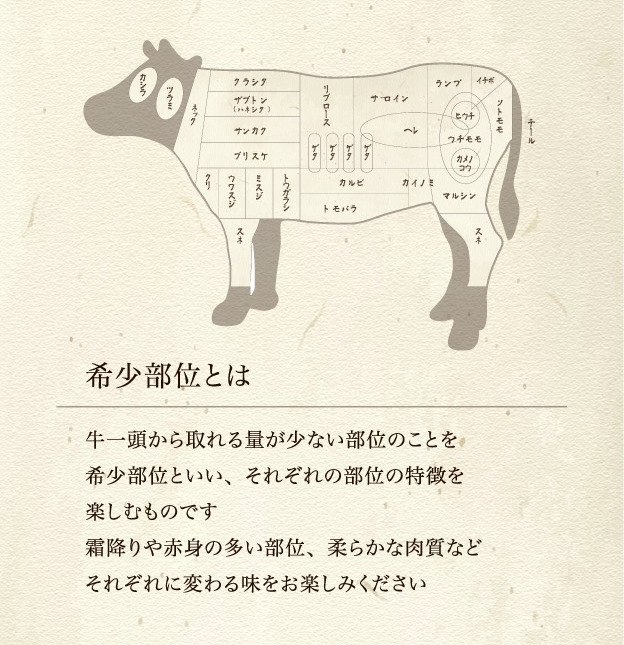 カシラ
ツラミ
ネック
クラシタ
ザブトン
(ハネシタ)
サンカク
ブリスケ
クリ
ウワスジ
ミスジ
トウガラシ
スネ
リブロース
ゲタ
ゲタ
ゲタ
ゲタ
カルビ
トモバラ
サーロイン
ヘレ
カイノミ
ランプ
イチボ
ヒウチ
ウチモモ
カメノ
コウ
マルシン
ソトモモ
スネ
テール
希少部位とは
牛一頭から取れる量が少ない部位のことを
希少部位といい、それぞれの部位の特徴を
楽しむものです
霜降りや赤身の多い部位、柔らかな肉質など
それぞれに変わる味をお楽しみください